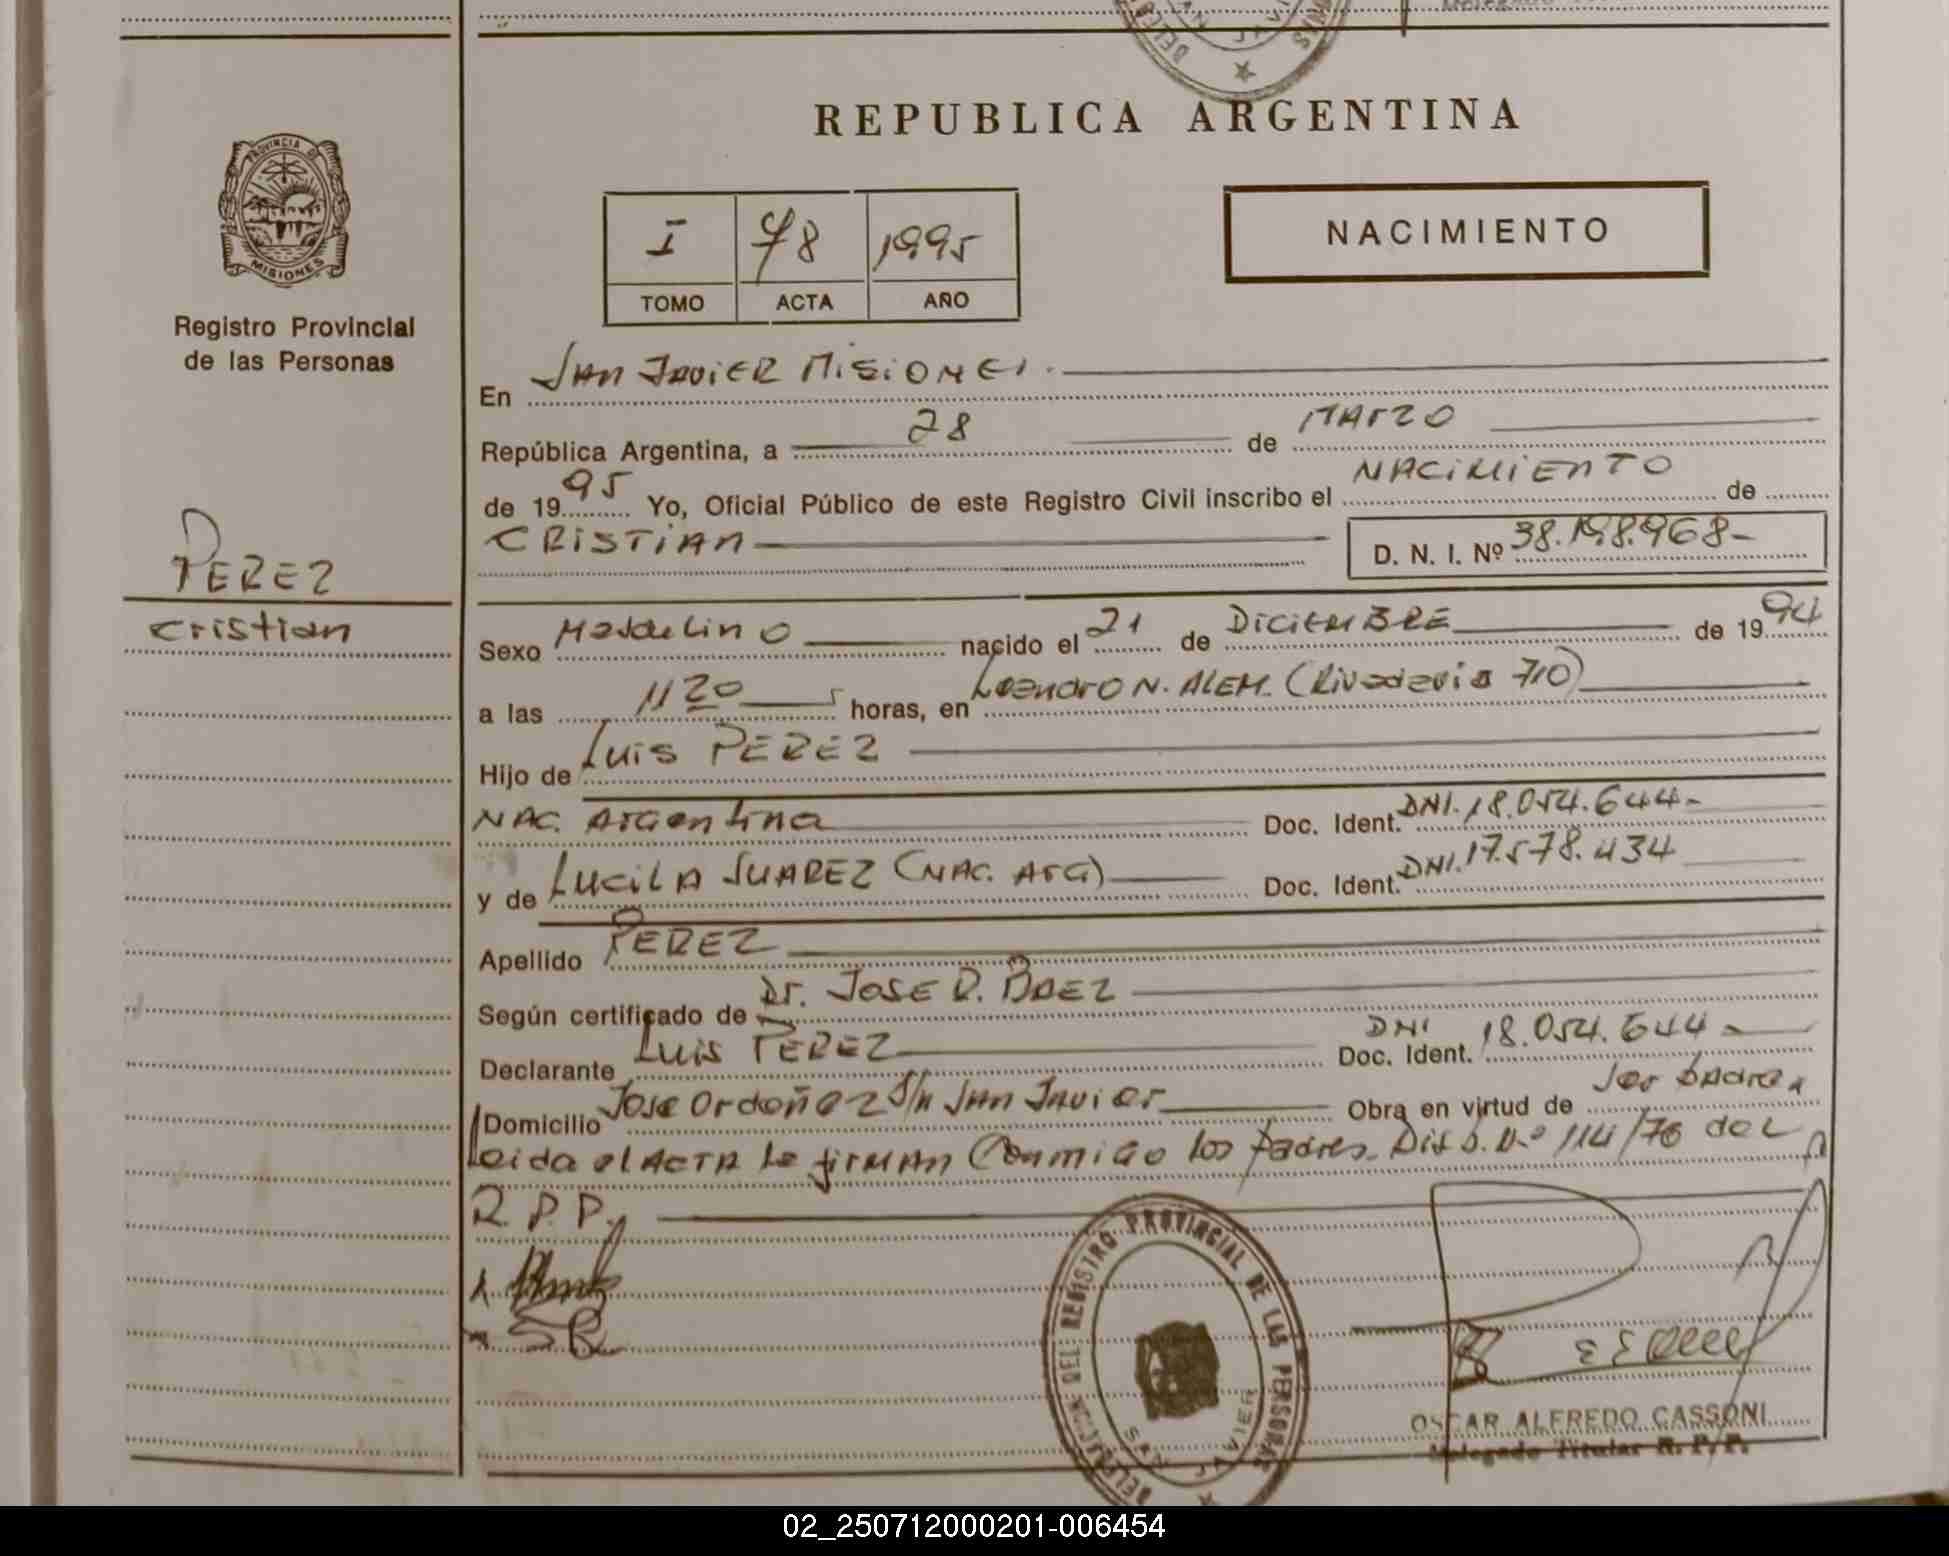 REPUBLICA ARGENTINA
PROVINCIA DE
MISIONES
Registro Provincial
de las Personas
I 78 1995
TOMO ACTA AÑO
NACIMIENTO
En SAN JAVIER MISIONES.
República Argentina, a 28 de MARZO
de 1995 Yo, Oficial Público de este Registro Civil inscribo el NACIMIENTO de
CRISTIAN D. N. I. Nº 38.198.968-
PEREZ
Cristian
Sexo Masculino nacido el 21 de DICIEMBRE de 1994
a las 1120 horas, en Leandro N. ALEM. (Rivadavia 710)
Hijo de Luis PEREZ
NAC. Argentina Doc. Ident. DNI. 18.054.644-
y de LUCILA SUAREZ (NAC. ARG) Doc. Ident. DNI. 17.578.434
Apellido PEREZ
Según certificado de Dr. JOSE D. BAEZ
Declarante Luis PEREZ Doc. Ident. DNI 18.054.644-
Domicilio Jose Ordoñez S/N San Javier Obra en virtud de Ser padre
Leida el ACTA La firman Conmigo los padres. Disp. Nº 114/76 del
R. P. P.
DELEGACION DEL REGISTRO PROVINCIAL DE LAS PERSONAS
SAN JAVIER
OSCAR ALFREDO CASSONI
Delegado Titular R. P. P.
02_250712000201-006454